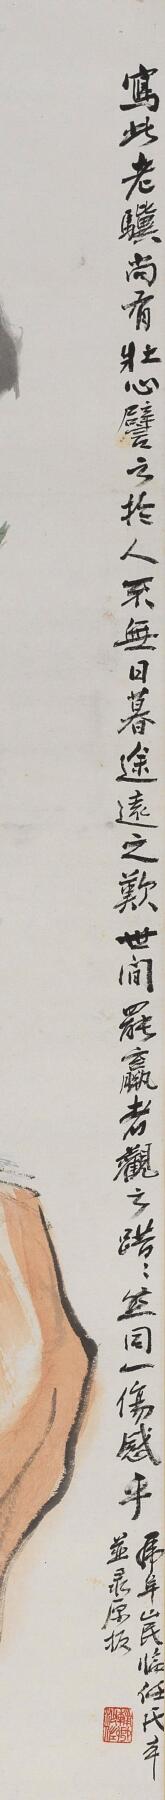 寫此老驥尚有壯心譬之於人不無日暮途遠之歎世間罷羸者觀之踖〻然同一傷感乎
虎年山民臨任氏本
並录原板